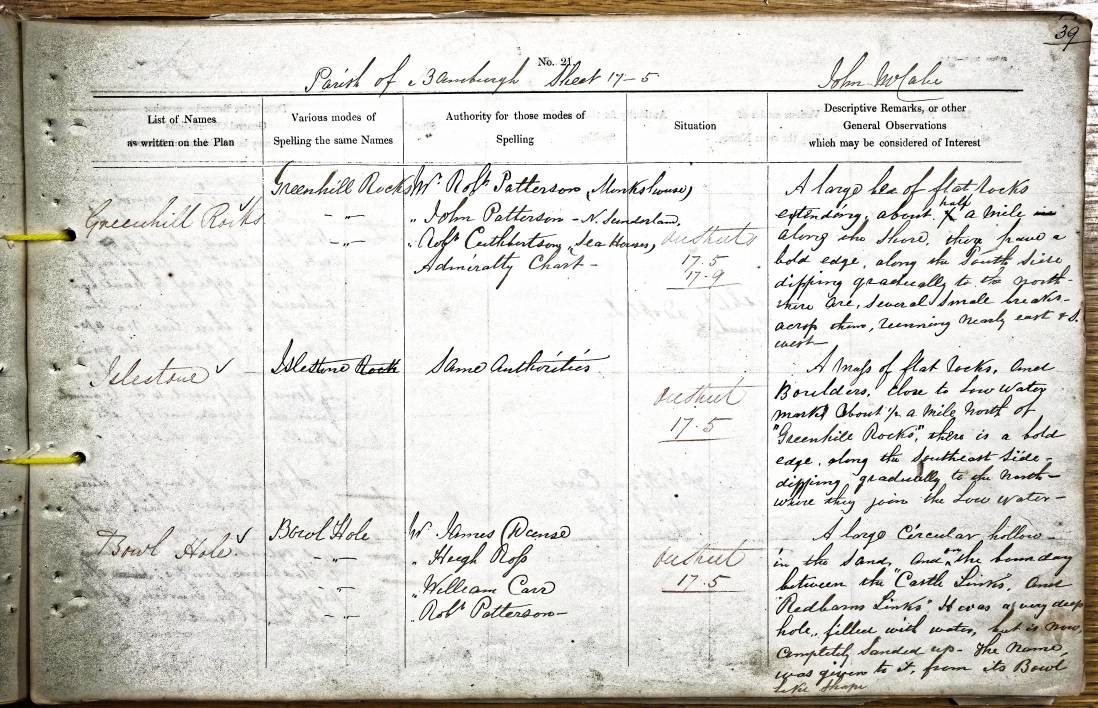 39
No. 21
Parish of Bamburgh Sheet 17-5
John McCabe
List of Names
as written on the Plan
Various modes of
Spelling the same Names
Authority for those modes of
Spelling
Situation
Descriptive Remarks, or other
General Observations
which may be considered of Interest
Greenhill Rocks
Greenhill Rocks
Mr. Robt. Patterson (Monkshouse)
" John Patterson - N. Sunderland,
" Robt. Cuthbertson, Sea Houses,
Admiralty Chart -
On Sheets
17.5
17.9
A large bed of flat rocks
extending, about half a mile
along the shore, they have a
bold edge, along the South side
dipping gradually to the North-
there are, several small breaks-
across them, running nearly east & S.
west-
Islestone
Islestone Rock
Same Authorities
On Sheet
17.5
A mass of flat rocks, and
Boulders, close to Low Water
mark about 1/2 a mile North of
"Greenhill Rocks", there is a bold
edge, along the Southeast side-
dipping gradually to the North-
where they join the Low Water-
Bowl Hole
Bowl Hole
Mr. James
" Hugh Ross
" William Carr
" Robt. Patterson-
On Sheet
17.5
A large Circular hollow-
in the Sand, and on the boundary
between the "Castle Links", and
"Redbarns Links". It was a very deep
hole, filled with water, but is now,
completely sanded up- The Name,
was given to it, from its Bowl
like shape